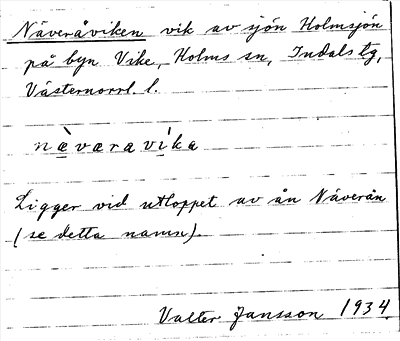 Näveråviken vik av sjön Holmsjön
på byn Vike, Holms sn, Indals tg,
Västernorrl. l.
næ̀væravíka
Ligger vid utloppet av ån Näverån
(se detta namn).
Valter Jansson 1934.